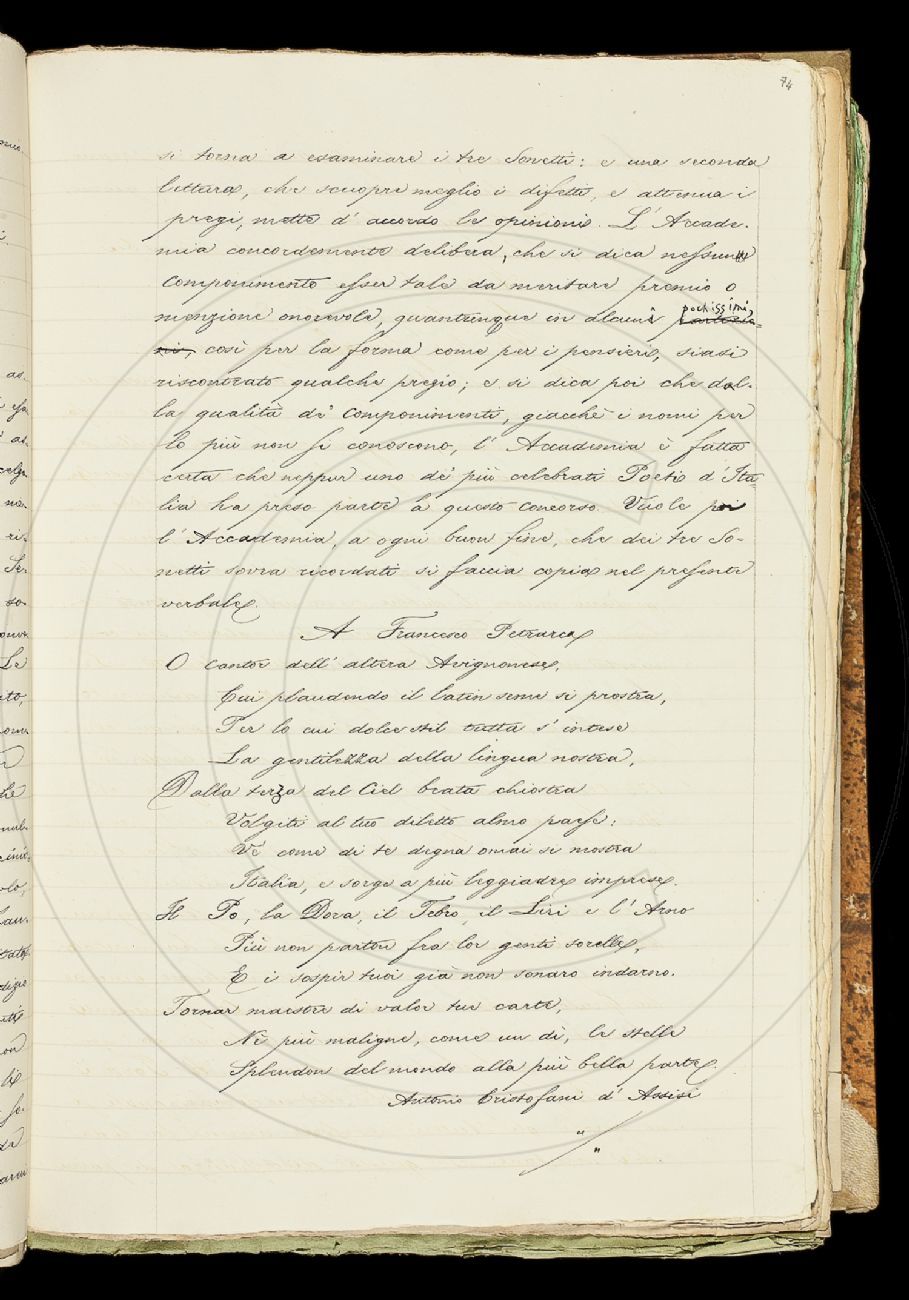 74
si torna a esaminare i tre Sonetti: e una seconda
lettura, che scuopre meglio i difetti, e attenua i
pregi, mette d' accordo le opinioni. L' Accade-
mia concordemente delibera, che si dica nessun
componimento esser tale da meritare premio o
menzione onorevole, quantunque in alcuni pochissimi,
così per la forma come per i pensieri, siasi
riscontrato qualche pregio; e si dica poi che dal-
la qualità de' componimenti, giacchè i nomi per
lo più non si conoscono, l' Accademia è fatta
certa che neppur uno de' più celebrati Poeti d' Ita
lia ha preso parte a questo concorso. Vuole poi
l' Accademia, a ogni buon fine, che dei tre So-
netti sovra ricordati si faccia copia nel presente
verbale.
A Francesco Petrarca
O cantor dell' altera Avignonese,
Cui plaudendo il latin seme si prostra,
Per lo cui dolce stil tutta s' intese
La gentilezza della lingua nostra,
Dalla terza del Ciel beata chiostra
Volgiti al tuo diletto almo paese:
Ve' come di te degna omai si mostra
Italia, e sorge a più leggiadre imprese.
Il Po, la Dora, il Tebro, il Liri e l' Arno
Più non parton fra lor genti sorelle,
E i sospir tuoi già non sonaro indarno.
Tornar maestre di valor tue carte,
Nè più maligne, come un dì, le stelle
Splendon del mondo alla più bella parte.
Antonio Cristofani d' Assisi